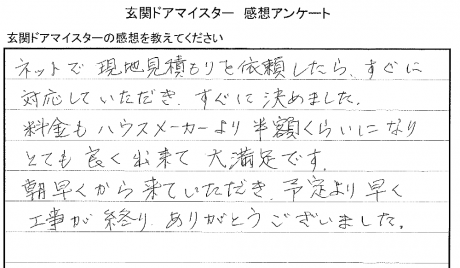 玄関ドアマイスター 感想アンケート
玄関ドアマイスターの感想を教えてください
ネットで現地見積もりを依頼したら、すぐに
対応していただき、すぐに決めました。
料金もハウスメーカーより半額くらいになり
とても良く出来て大満足です。
朝早くから来ていただき、予定より早く
工事が終り、ありがとうございました。